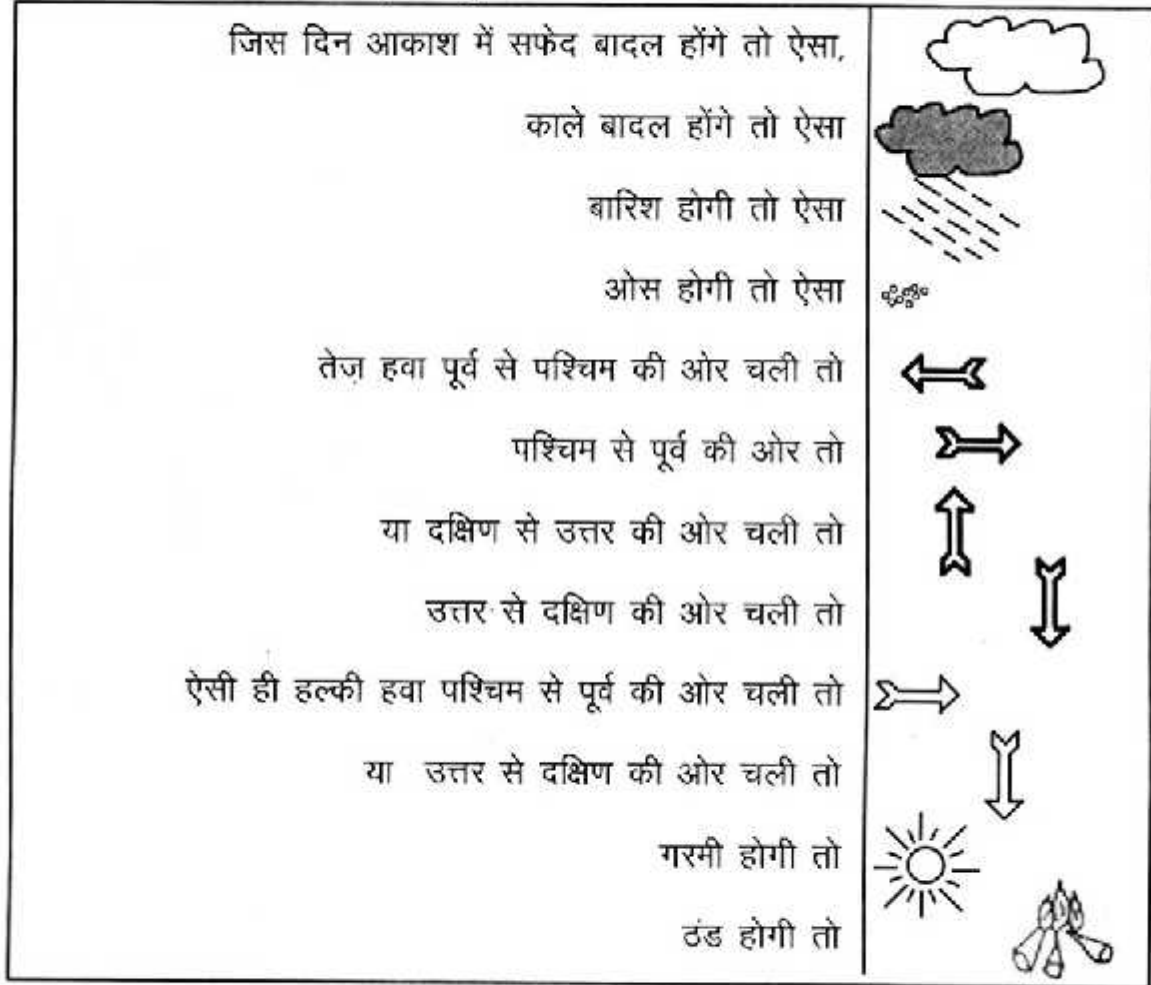 जिस दिन आकाश में सफेद बादल होंगे तो ऐसा,
काले बादल होंगे तो ऐसा
बारिश होगी तो ऐसा
ओस होगी तो ऐसा
तेज़ हवा पूर्व से पश्चिम की ओर चली तो
पश्चिम से पूर्व की ओर तो
या दक्षिण से उत्तर की ओर चली तो
उत्तर से दक्षिण की ओर चली तो
ऐसी ही हल्की हवा पश्चिम से पूर्व की ओर चली तो
या उत्तर से दक्षिण की ओर चली तो
गरमी होगी तो
ठंड होगी तो